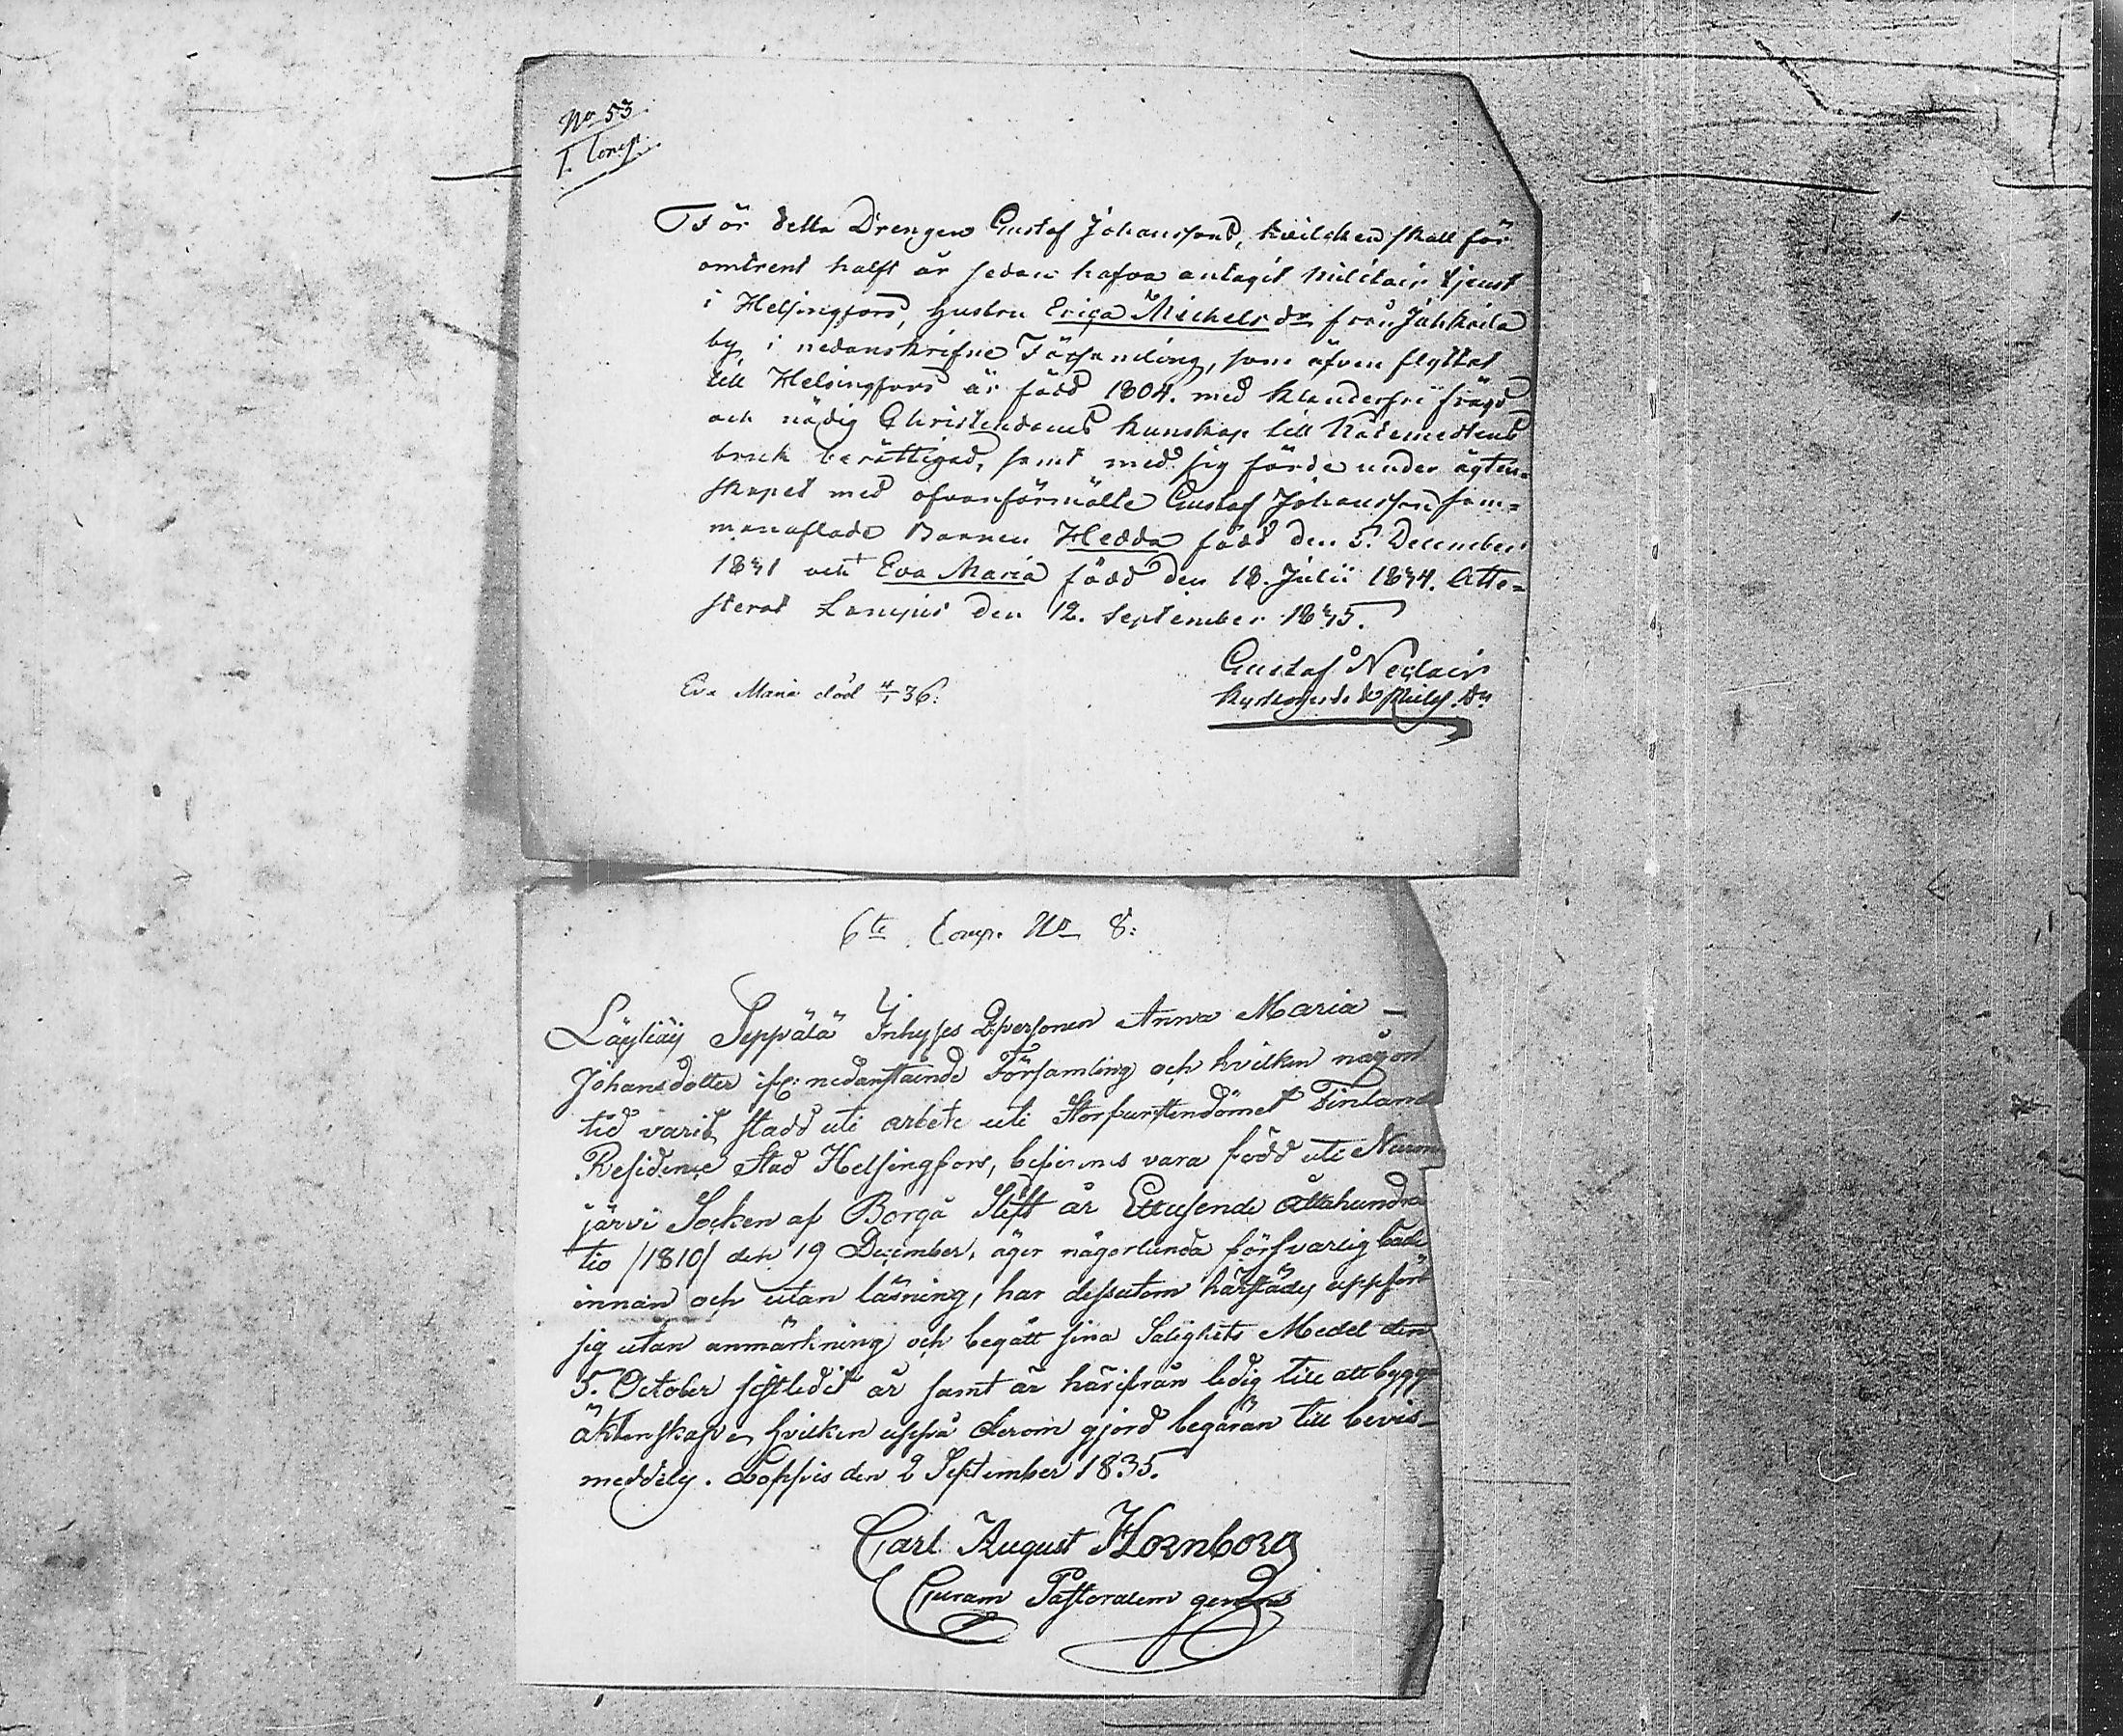 No 53
I. Comp.
För detta Drengen Gustaf Johanssons, hvilcken skall för
omtrent halft år sedan hafva antagit militair tjenst
i Helsingfors, hustru Erica Michels dr från
by, i nedanskrifne Församling, som äfven flyttat
till Helsingfors är född 1804. med klanderfri frägd
och nådig Christendoms kunskap till Nattvardens
bruk berättigad, samt med sig förde under ägten-
skapet med ofvanförmälte Gustaf Johansson sam-
manaflade Barnen Hedda född den 5. December
1831 och + Eva Maria född den 18. Julii 1834. Atte-
sterat Lampis den 12. September 1835.
Gustaf
Eva Maria död 4/1 36.
6te Comp. No 8:
Läyliäis Seppälä Inhyses Qvpersonen Anna Maria
Johansdotter ifr: nedanstående Församling och hvilken någon
tid varit stadd uti arbete uti Storfurstendömet Finland
Residence Stad Helsingfors, befinnes vara född uti Nurm
järvi Socken af Borgå Stift år Ettusende åttahundra
tio /1810/ den 19 December, äger någorlunda försvarlig både
innan och utan läsning, har dessutom härstädes uppfört
sig utan anmärkning och begått sina Salighets Medel den
5. October sistledit år samt är härifrån ledig till att bygga
äktenskap, hvilken uppå derom gjord begäran till bevis
meddelas. Loppis den 2 September 1835.
Carl August Hornborg
Curam Pastoralem gerens